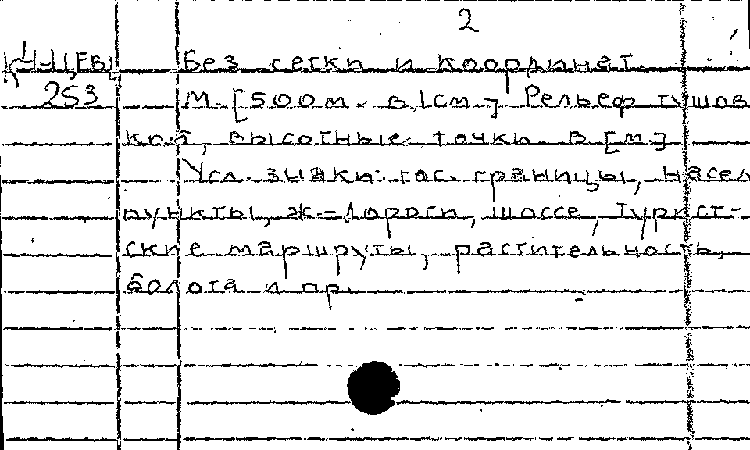 2
Без сетки и координат.
253 М. [500м. в 1см.] Рельеф тушов
кой, высотные точки в [м]
Усл. знаки: гос. границы, насел
пункты, ж-дороги, шоссе, турист-
ские маршруты, растительность,
болота и пр.